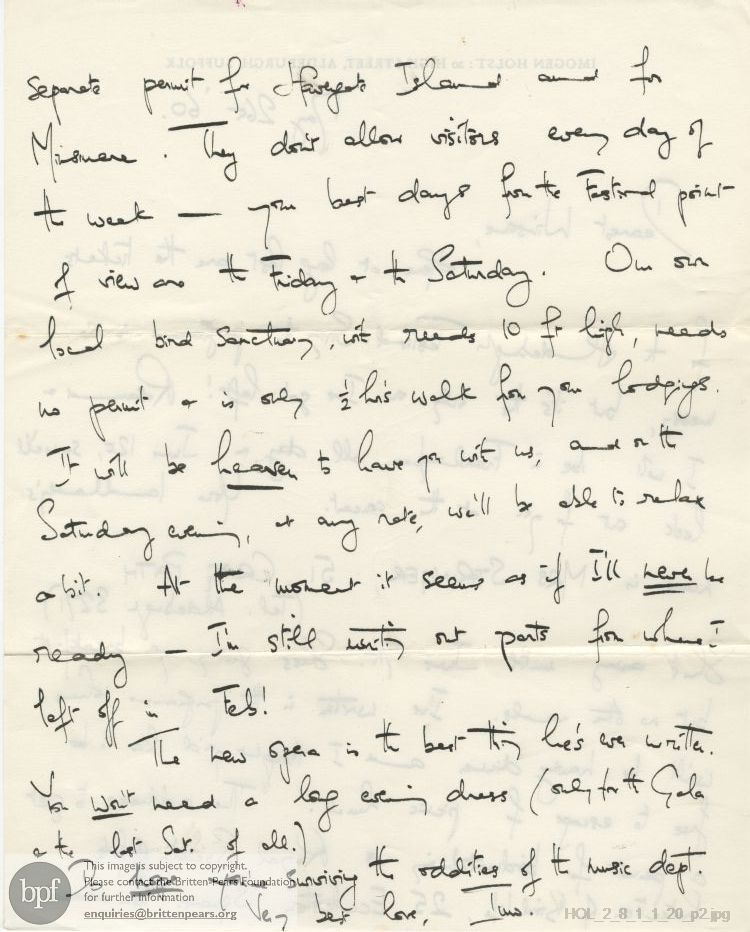 separate permit for Havergate Island and for
Minsmere. They don't allow visitors every day of
the week — your best days from the Festival point
of view are the Friday + the Saturday. Our own
local bird sanctuary, with reeds 10 ft high, needs
no permit + is only ½ hr's walk from your lodgings.
It will be heaven to have you with us, and on the
Saturday evening, at any rate, we'll be able to relax
a bit. At the moment it seems as if I'll never be
ready — I'm still writing out parts from where I
left off in Feb!
The new opera is the best thing he's ever written.
You won't need a long evening dress (only for the Gala
the last Sat. of all.)
surviving the oddities of the music dept.
Very best love, Imo.
bpf
This image is subject to copyright.
Please contact the Britten-Pears Foundation
for further information
enquiries@brittenpears.org
HOL_2_8_1_1_20_p2.jpg